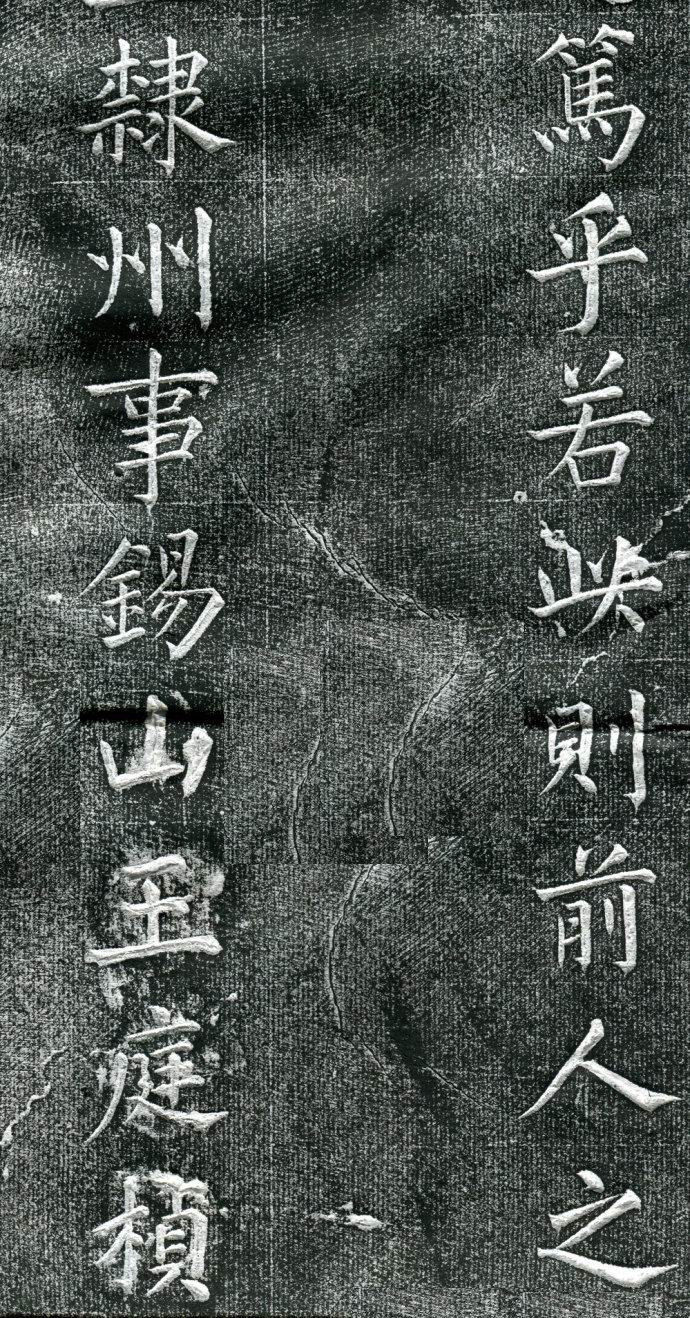 篤乎若此則前人之
隸州事錫山王庭楨